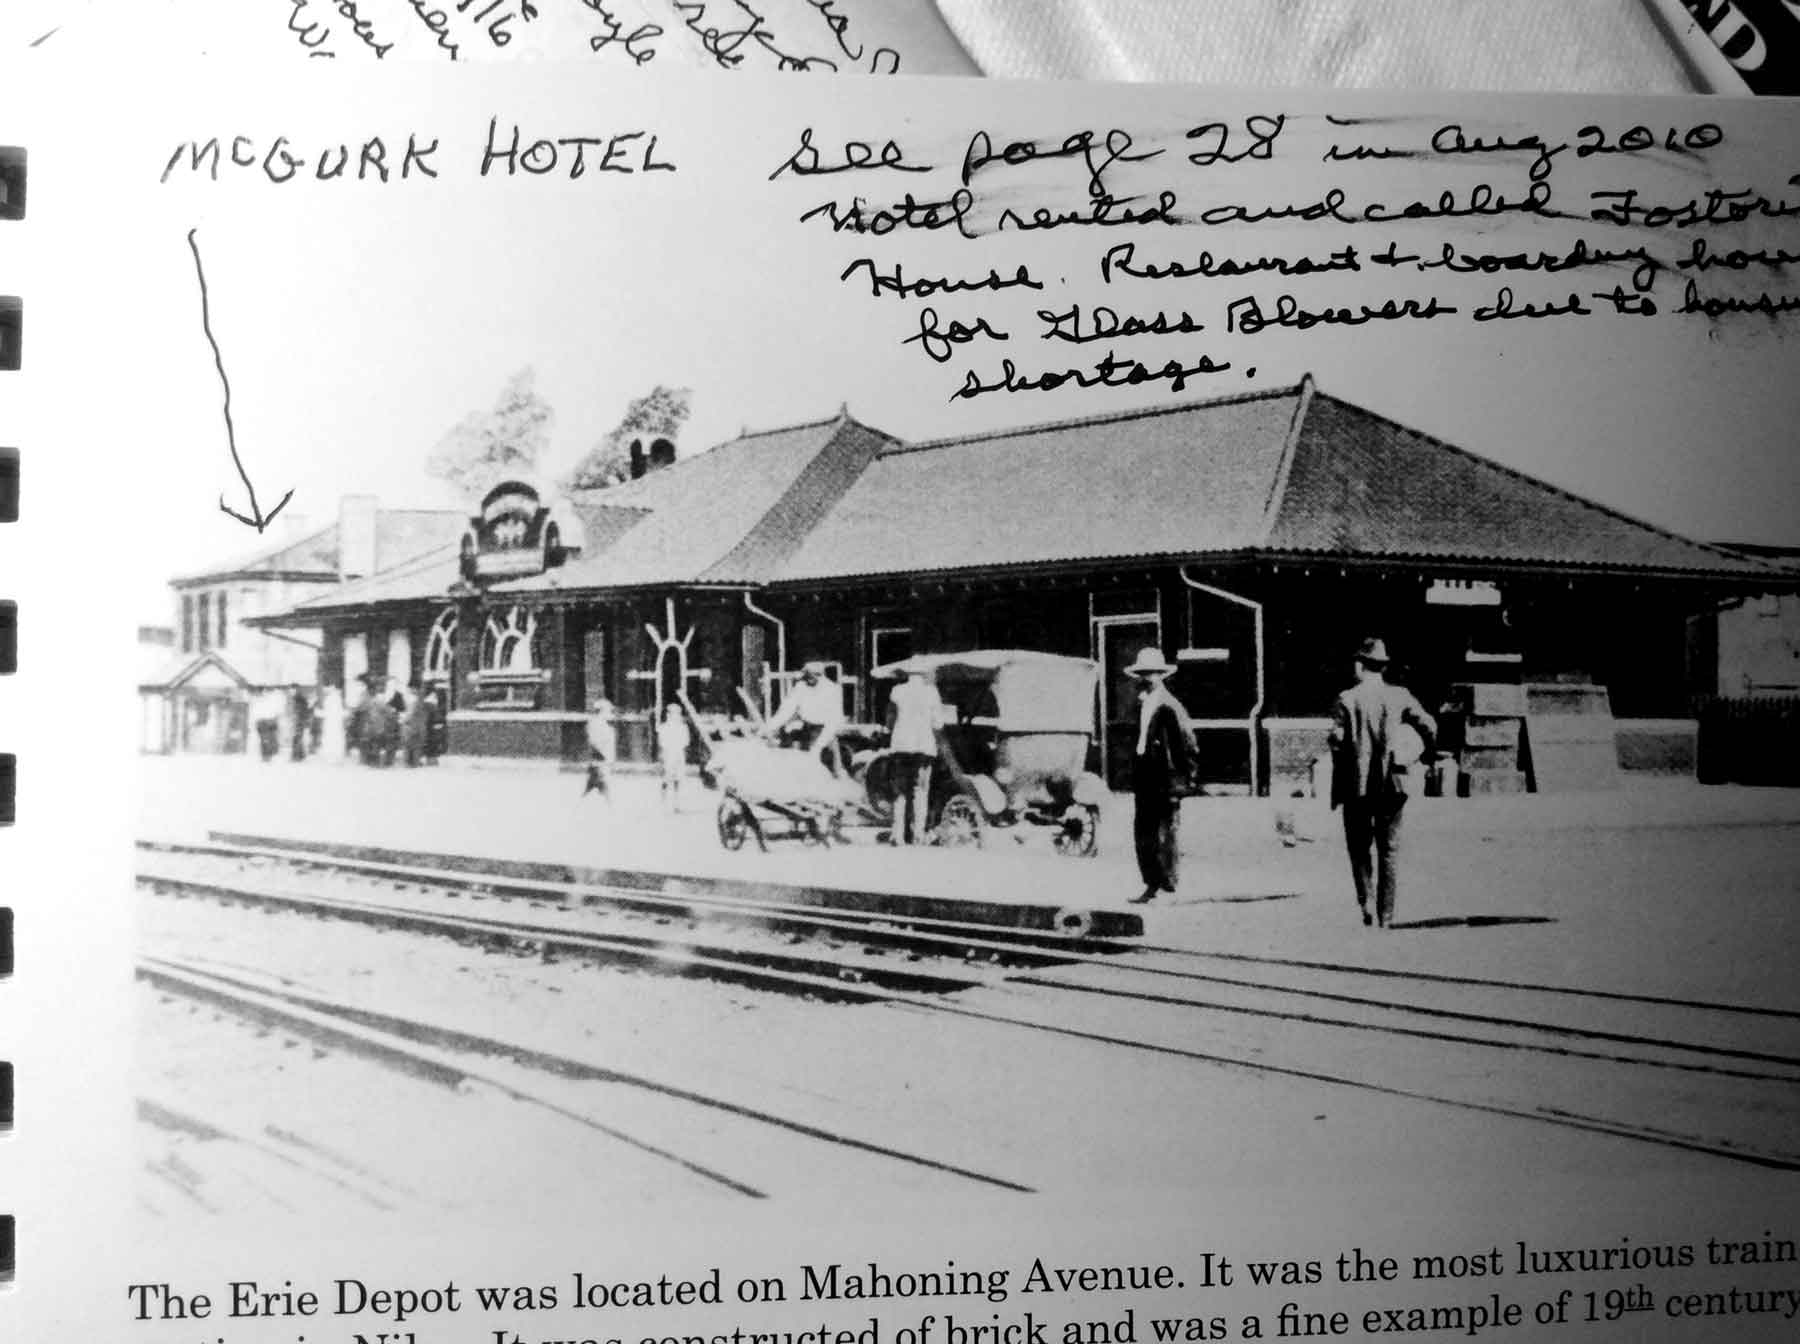 ND
McGURK HOTEL
See page 28 in Aug 2010
Hotel rented and called Fostori
House. Restaurant & boarding hou
for Glass Blowers due to housi
shortage.
NILES
The Erie Depot was located on Mahoning Avenue. It was the most luxurious train
in Niles. It was constructed of brick and was a fine example of 19th century